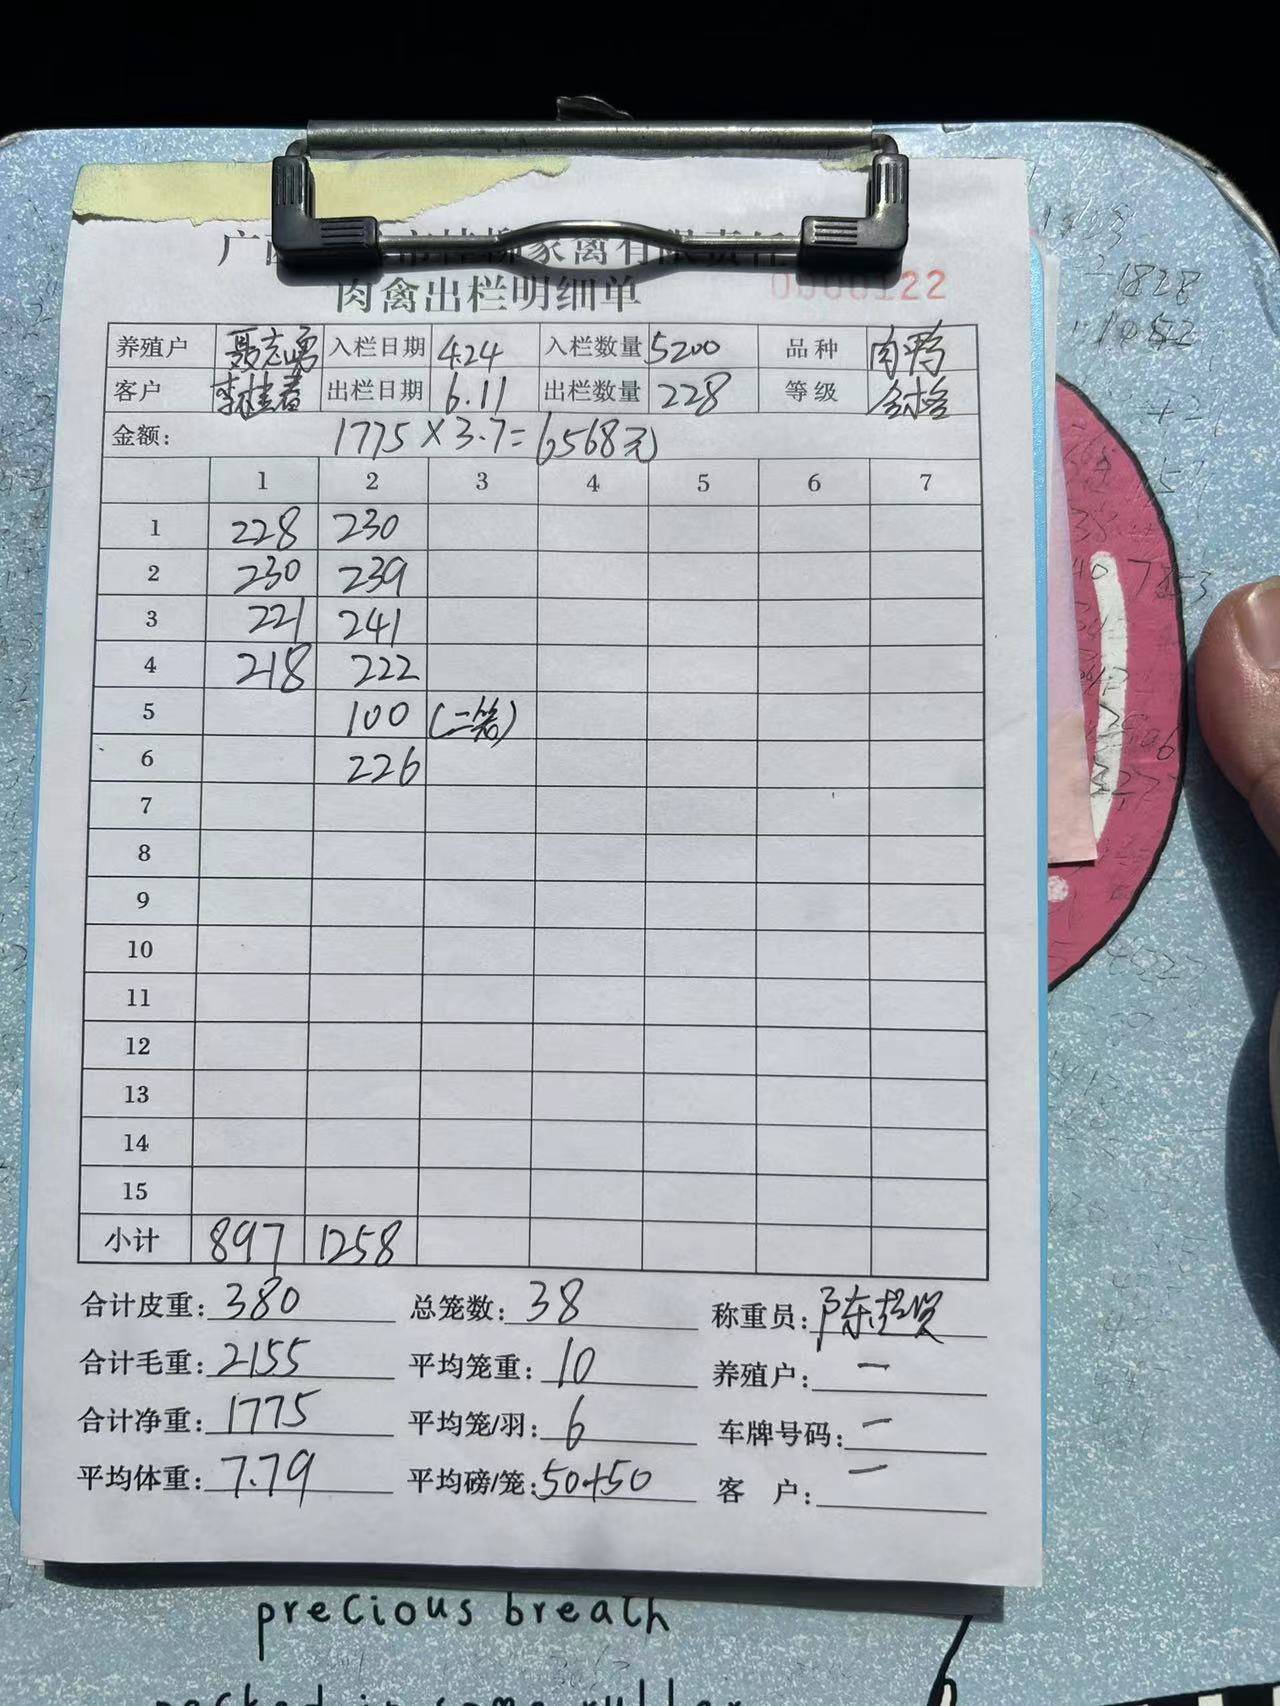 肉禽出栏明细单
0000122
养殖户 聂志勇 入栏日期 4.24 入栏数量 5200 品种 肉鸭
客户 李桂春 出栏日期 6.11 出栏数量 228 等级 合格
金额: 1775×3.7=6568元
1 2 3 4 5 6 7
1 228 230
2 230 239
3 221 241
4 218 222
5 100 (二笼)
6 226
7
8
9
10
11
12
13
14
15
小计 897 1258
合计皮重: 380 总笼数: 38 称重员:
合计毛重: 2155 平均笼重: 10 养殖户: 一
合计净重: 1775 平均笼/羽: 6 车牌号码: 一
平均体重: 7.79 平均磅/笼: 50+50 客 户: 一
precious breath